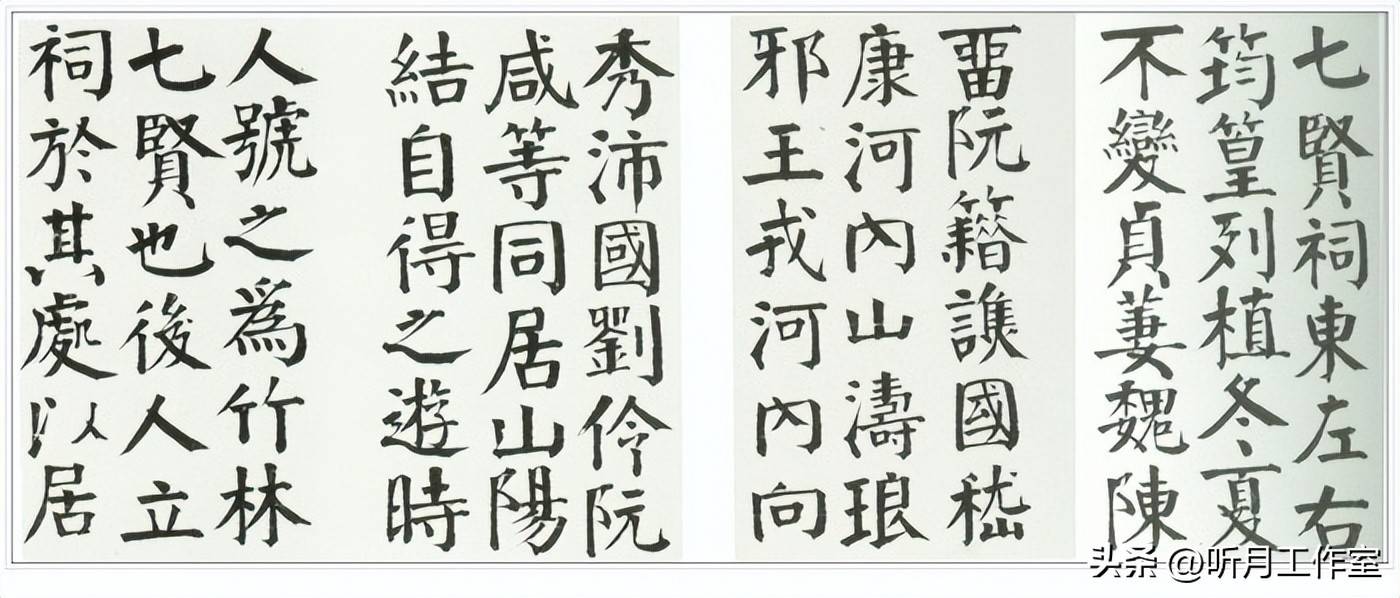 七賢祠東左右
筠篁列植冬夏
不變貞萋魏陳
畱阮籍譙國嵇
康河內山濤琅
邪王戎河內向
秀沛國劉伶阮
咸等同居山陽
結自得之遊時
人號之爲竹林
七賢也後人立
祠於其處以居
头条 @听月工作室